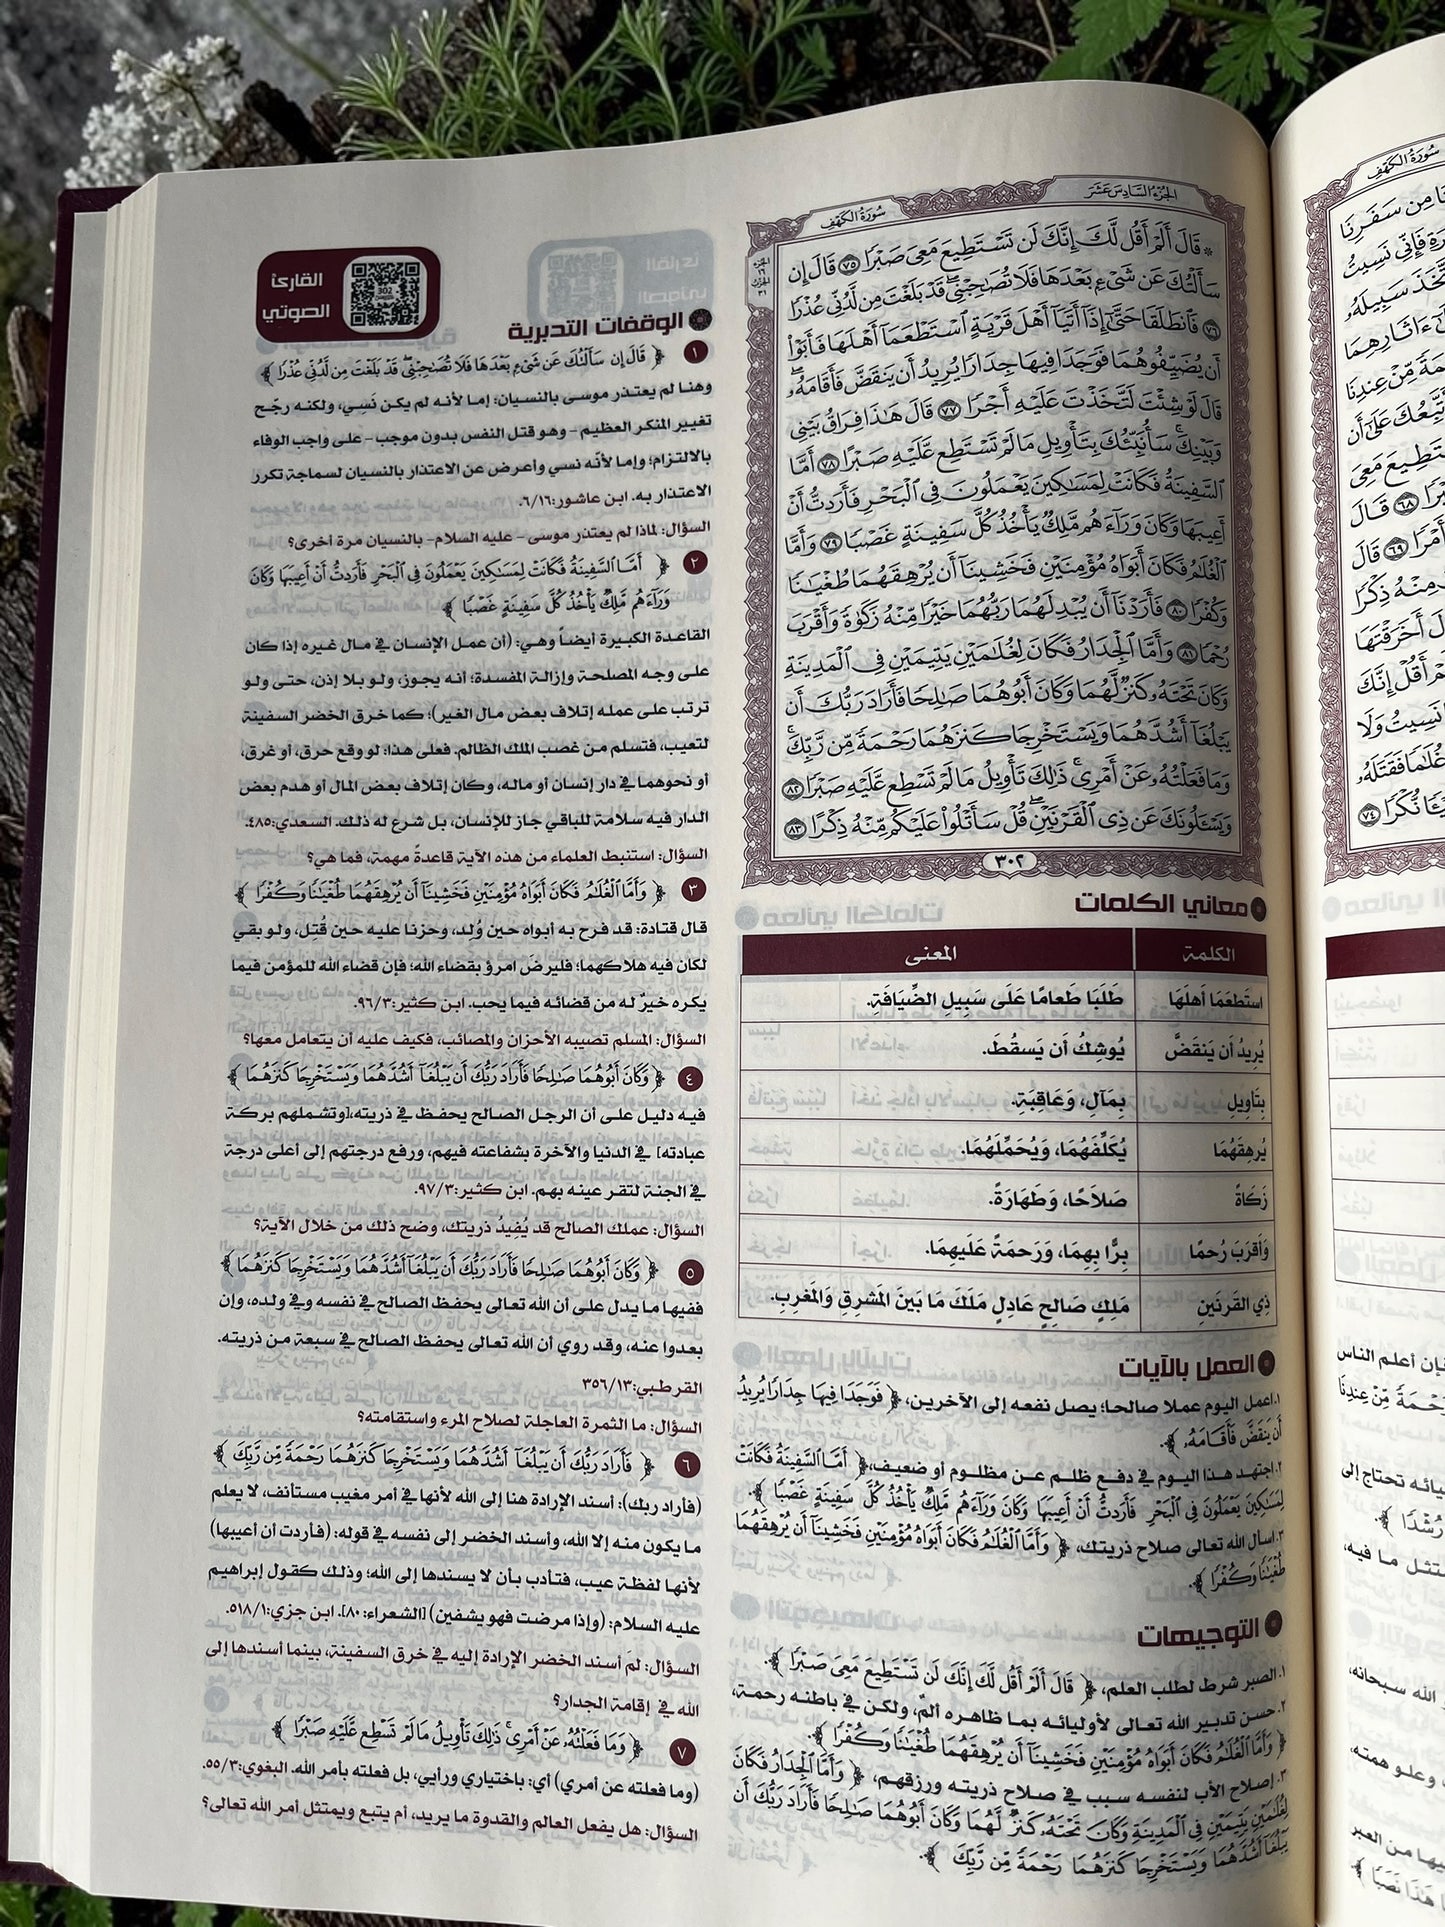 الجزء السادس عشر
سورة الكهف
۞ قَالَ أَلَمْ أَقُل لَّكَ إِنَّكَ لَن تَسْتَطِيعَ مَعِىَ صَبْرًا ٧٥ قَالَ إِن
سَأَلْتُكَ عَن شَىْءٍۭ بَعْدَهَا فَلَا تُصَٰحِبْنِى ۖ قَدْ بَلَغْتَ مِن لَّدُنِّى عُذْرًا
٧٦ فَٱنطَلَقَا حَتَّىٰٓ إِذَآ أَتَيَآ أَهْلَ قَرْيَةٍ ٱسْتَطْعَمَآ أَهْلَهَا فَأَبَوْا۟
أَن يُضَيِّفُوهُمَا فَوَجَدَا فِيهَا جِدَارًا يُرِيدُ أَن يَنقَضَّ فَأَقَامَهُۥ ۖ
قَالَ لَوْ شِئْتَ لَتَّخَذْتَ عَلَيْهِ أَجْرًا ٧٧ قَالَ هَٰذَا فِرَاقُ بَيْنِى
وَبَيْنِكَ ۚ سَأُنَبِّئُكَ بِتَأْوِيلِ مَا لَمْ تَسْتَطِع عَّلَيْهِ صَبْرًا ٧٨ أَمَّا
ٱلسَّفِينَةُ فَكَانَتْ لِمَسَٰكِينَ يَعْمَلُونَ فِى ٱلْبَحْرِ فَأَرَدتُّ أَنْ
أَعِيبَهَا وَكَانَ وَرَآءَهُم مَّلِكٌ يَأْخُذُ كُلَّ سَفِينَةٍ غَصْبًا ٧٩ وَأَمَّا
ٱلْغُلَٰمُ فَكَانَ أَبَوَاهُ مُؤْمِنَيْنِ فَخَشِينَآ أَن يُرْهِقَهُمَا طُغْيَٰنًا
وَكُفْرًا ٨٠ فَأَرَدْنَآ أَن يُبْدِلَهُمَا رَبُّهُمَا خَيْرًا مِّنْهُ زَكَوٰةً وَأَقْرَبَ
رُحْمًا ٨١ وَأَمَّا ٱلْجِدَارُ فَكَانَ لِغُلَٰمَيْنِ يَتِيمَيْنِ فِى ٱلْمَدِينَةِ
وَكَانَ تَحْتَهُۥ كَنزٌ لَّهُمَا وَكَانَ أَبُوهُمَا صَٰلِحًا فَأَرَادَ رَبُّكَ أَن
يَبْلُغَآ أَشُدَّهُمَا وَيَسْتَخْرِجَا كَنزَهُمَا رَحْمَةً مِّن رَّبِّكَ ۚ
وَمَا فَعَلْتُهُۥ عَنْ أَمْرِى ۚ ذَٰلِكَ تَأْوِيلُ مَا لَمْ تَسْطِع عَّلَيْهِ صَبْرًا ٨٢
وَيَسْـَٔلُونَكَ عَن ذِى ٱلْقَرْنَيْنِ ۖ قُلْ سَأَتْلُوا۟ عَلَيْكُم مِّنْهُ ذِكْرًا ٨٣
٣٠٢
معاني الكلمات
الكلمة المعنى
استَطعَمَا أهلَهَا طَلَبَا طَعامًا عَلَى سَبِيلِ الضِّيَافَةِ.
يُرِيدُ أن يَنقَضَّ يُوشِكُ أن يَسقُطَ.
بِتَأوِيلِ بِمَآلِ، وَعَاقِبَةِ.
يُرهِقَهُمَا يُكَلِّفَهُمَا، وَيُحَمِّلَهُمَا.
زَكَاةً صَلَاحًا، وَطَهَارَةً.
وَأقرَبَ رُحمًا بِرًّا بِهِمَا، وَرَحمَةً عَلَيهِمَا.
ذِي القَرنَينِ مَلِكٍ صَالِحٍ عَادِلٍ مَلَكَ مَا بَينَ المَشرِقِ وَالمَغرِبِ.
العمل بالآيات
١. اعمل اليوم عملا صالحا؛ يصل نفعه إلى الآخرين، ﴿ فَوَجَدَا فِيهَا جِدَارًا يُرِيدُ
أَن يَنقَضَّ فَأَقَامَهُۥ ﴾.
٢. اجتهد هذا اليوم في دفع ظلم عن مظلوم أو ضعيف، ﴿ أَمَّا ٱلسَّفِينَةُ فَكَانَتْ
لِمَسَٰكِينَ يَعْمَلُونَ فِى ٱلْبَحْرِ فَأَرَدتُّ أَنْ أَعِيبَهَا وَكَانَ وَرَآءَهُم مَّلِكٌ يَأْخُذُ كُلَّ سَفِينَةٍ غَصْبًا ﴾.
٣. اسأل الله تعالى صلاح ذريتك، ﴿ وَأَمَّا ٱلْغُلَٰمُ فَكَانَ أَبَوَاهُ مُؤْمِنَيْنِ فَخَشِينَآ أَن يُرْهِقَهُمَا
طُغْيَٰنًا وَكُفْرًا ﴾.
التوجيهات
١. الصبر شرط لطلب العلم، ﴿ قَالَ أَلَمْ أَقُل لَّكَ إِنَّكَ لَن تَسْتَطِيعَ مَعِىَ صَبْرًا ﴾.
٢. حسن تدبير الله تعالى لأوليائه بما ظاهره ألمٌ، ولكن في باطنه رحمة،
﴿ وَأَمَّا ٱلْغُلَٰمُ فَكَانَ أَبَوَاهُ مُؤْمِنَيْنِ فَخَشِينَآ أَن يُرْهِقَهُمَا طُغْيَٰنًا وَكُفْرًا ﴾.
٣. إصلاح الأب لنفسه سبب في صلاح ذريته ورزقهم، ﴿ وَأَمَّا ٱلْجِدَارُ فَكَانَ
لِغُلَٰمَيْنِ يَتِيمَيْنِ فِى ٱلْمَدِينَةِ وَكَانَ تَحْتَهُۥ كَنزٌ لَّهُمَا وَكَانَ أَبُوهُمَا صَٰلِحًا فَأَرَادَ رَبُّكَ أَن
يَبْلُغَآ أَشُدَّهُمَا وَيَسْتَخْرِجَا كَنزَهُمَا رَحْمَةً مِّن رَّبِّكَ ﴾.
القارئ
الصوتي
302
الوقفات التدبرية
١ ﴿ قَالَ إِن سَأَلْتُكَ عَن شَىْءٍۭ بَعْدَهَا فَلَا تُصَٰحِبْنِى ۖ قَدْ بَلَغْتَ مِن لَّدُنِّى عُذْرًا ﴾
وهنا لم يعتذر موسى بالنسيان؛ إما لأنه لم يكن نَسِي، ولكنه رجّح
تغيير المنكر العظيم – وهو قتل النفس بدون موجب – على واجب الوفاء
بالالتزام؛ وإما لأنّه نسي وأعرض عن الاعتذار بالنسيان لسماجة تكرر
الاعتذار به. ابن عاشور:٦/١٦.
السؤال: لماذا لم يعتذر موسى – عليه السلام – بالنسيان مرة أخرى؟
٢ ﴿ أَمَّا ٱلسَّفِينَةُ فَكَانَتْ لِمَسَٰكِينَ يَعْمَلُونَ فِى ٱلْبَحْرِ فَأَرَدتُّ أَنْ أَعِيبَهَا وَكَانَ
وَرَآءَهُم مَّلِكٌ يَأْخُذُ كُلَّ سَفِينَةٍ غَصْبًا ﴾
القاعدة الكبيرة أيضاً وهي: (أن عمل الإنسان في مال غيره إذا كان
على وجه المصلحة وإزالة المفسدة؛ أنه يجوز، ولو بلا إذن، حتى ولو
ترتب على عمله إتلاف بعض مال الغير)؛ كما خرق الخضر السفينة
لتعيب، فتسلم من غصب الملك الظالم. فعلى هذا: لو وقع حرق، أو غرق،
أو نحوهما في دار إنسان أو ماله، وكان إتلاف بعض المال أو هدم بعض
الدار فيه سلامة للباقي جاز للإنسان، بل شرع له ذلك. السعدي:٤٨٥.
السؤال: استنبط العلماء من هذه الآية قاعدةً مهمة، فما هي؟
٣ ﴿ وَأَمَّا ٱلْغُلَٰمُ فَكَانَ أَبَوَاهُ مُؤْمِنَيْنِ فَخَشِينَآ أَن يُرْهِقَهُمَا طُغْيَٰنًا وَكُفْرًا ﴾
قال قتادة: قد فرح به أبواه حين وُلِد، وحزنا عليه حين قُتِل، ولو بقي
لكان فيه هلاكهما؛ فليرضَ امرؤ بقضاء الله؛ فإن قضاء الله للمؤمن فيما
يكره خيرٌ له من قضائه فيما يحب. ابن كثير:٩٦/٣.
السؤال: المسلم تصيبه الأحزان والمصائب، فكيف عليه أن يتعامل معها؟
٤ ﴿ وَكَانَ أَبُوهُمَا صَٰلِحًا فَأَرَادَ رَبُّكَ أَن يَبْلُغَآ أَشُدَّهُمَا وَيَسْتَخْرِجَا كَنزَهُمَا ﴾
فيه دليل على أن الرجل الصالح يحفظ في ذريته، [وتشملهم بركة
عبادته] في الدنيا والآخرة بشفاعته فيهم، ورفع درجتهم إلى أعلى درجة
في الجنة لتقر عينه بهم. ابن كثير:٩٧/٣.
السؤال: عملك الصالح قد يُفِيدُ ذريتك، وضح ذلك من خلال الآية؟
٥ ﴿ وَكَانَ أَبُوهُمَا صَٰلِحًا فَأَرَادَ رَبُّكَ أَن يَبْلُغَآ أَشُدَّهُمَا وَيَسْتَخْرِجَا كَنزَهُمَا ﴾
ففيها ما يدل على أن الله تعالى يحفظ الصالح في نفسه وفي ولده، وإن
بعدوا عنه، وقد روي أن الله تعالى يحفظ الصالح في سبعة من ذريته.
القرطبي:٣٥٦/١٣
السؤال: ما الثمرة العاجلة لصلاح المرء واستقامته؟
٦ ﴿ فَأَرَادَ رَبُّكَ أَن يَبْلُغَآ أَشُدَّهُمَا وَيَسْتَخْرِجَا كَنزَهُمَا رَحْمَةً مِّن رَّبِّكَ ﴾
(فأراد ربك): أسند الإرادة هنا إلى الله لأنها في أمر مغيب مستأنف، لا يعلم
ما يكون منه إلا الله، وأسند الخضر إلى نفسه في قوله: (فأردت أن أعيبها)
لأنها لفظة عيب، فتأدب بأن لا يسندها إلى الله؛ وذلك كقول إبراهيم
عليه السلام: (وإذا مرضت فهو يشفين) [الشعراء: ٨٠]. ابن جزي:٥١٨/١.
السؤال: لمَ أسند الخضر الإرادة إليه في خرق السفينة، بينما أسندها إلى
الله في إقامة الجدار؟
٧ ﴿ وَمَا فَعَلْتُهُۥ عَنْ أَمْرِى ۚ ذَٰلِكَ تَأْوِيلُ مَا لَمْ تَسْطِع عَّلَيْهِ صَبْرًا ﴾
(وما فعلته عن أمري) أي: باختياري ورأيي، بل فعلته بأمر الله. البغوي:٥٥/٣.
السؤال: هل يفعل العالم والقدوة ما يريد، أم يتبع ويمتثل أمر الله تعالى؟